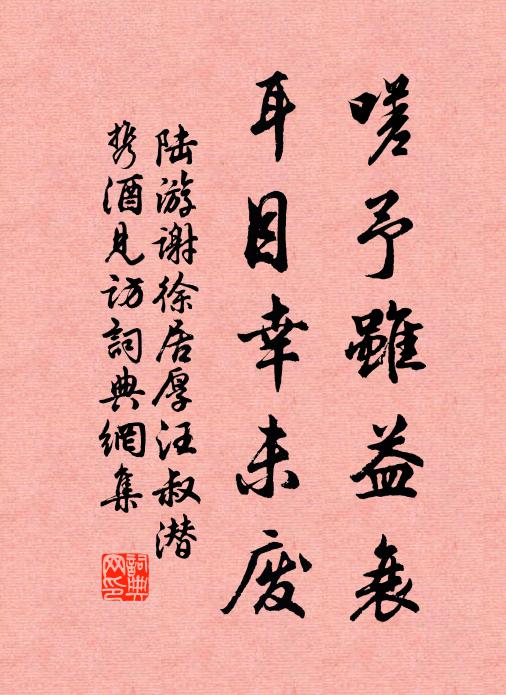 嗟予雖益衰
耳目幸未废
陆游谢徐居厚汪叔潜
携酒见访詞典網集
詞典网印